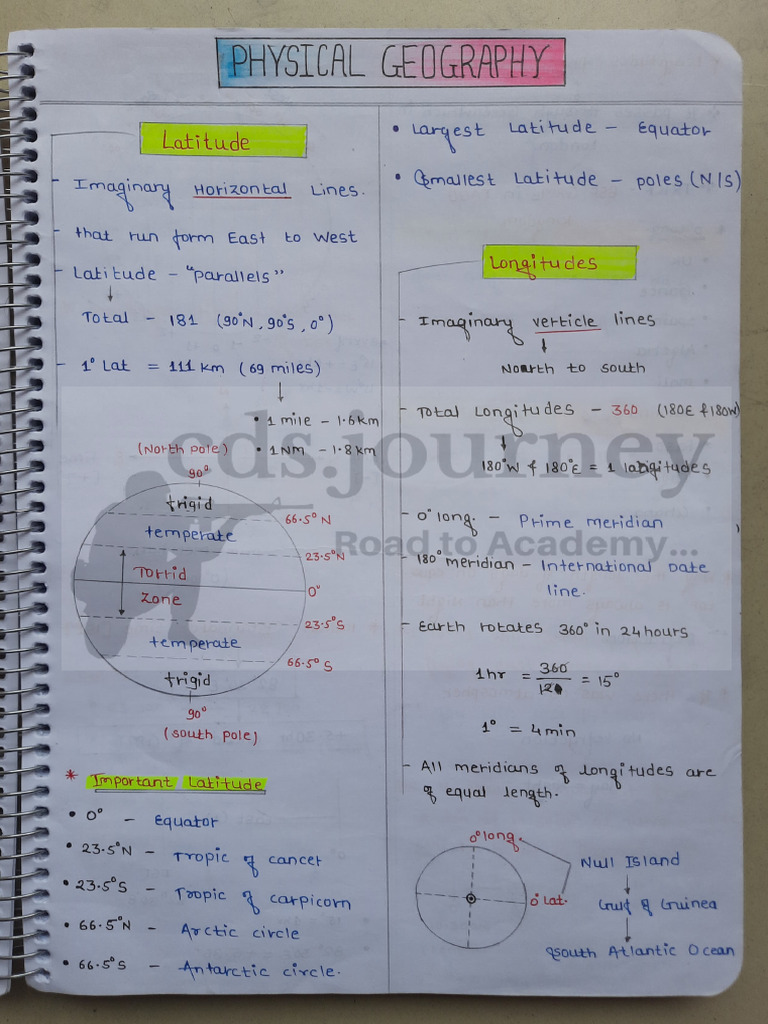 PHYSICAL GEOGRAPHY
Latitude
- Imaginary Horizontal Lines.
- that run form East to West
- Latitude - "parallels"
↓
Total - 181 (90°N, 90°S, 0°)
- 1° Lat = 111 km (69 miles)
↓
• 1 mile - 1.6km
• 1 NM - 1.8km
(North pole)
90°
frigid
66.5° N
temperate
23.5°N
Torrid
0°
Zone
23.5°S
temperate
66.5° S
frigid
90°
(south pole)
* Important Latitude
• 0° - Equator
• 23.5°N - Tropic of cancer
• 23.5°S - Tropic of carpicorn
• 66.5°N - Arctic circle
• 66.5°S - Antarctic circle.
• Largest Latitude - Equator
• Smallest Latitude - poles (N/S)
Longitudes
- Imaginary verticle lines
↓
North to south
- Total Longitudes - 360 (180E & 180W)
↓
180°W & 180°E = 1 longitudes
- 0° long. - Prime meridian
- 180° meridian - International Date
line.
- Earth rotates 360° in 24 hours
1hr = 360/24 = 15°
1° = 4min
- All meridians of longitudes are
of equal length.
0° long.
Null Island
0° Lat.
↓
Gulf of Guinea
↓
South Atlantic Ocean
cds.journey
Road to Academy...